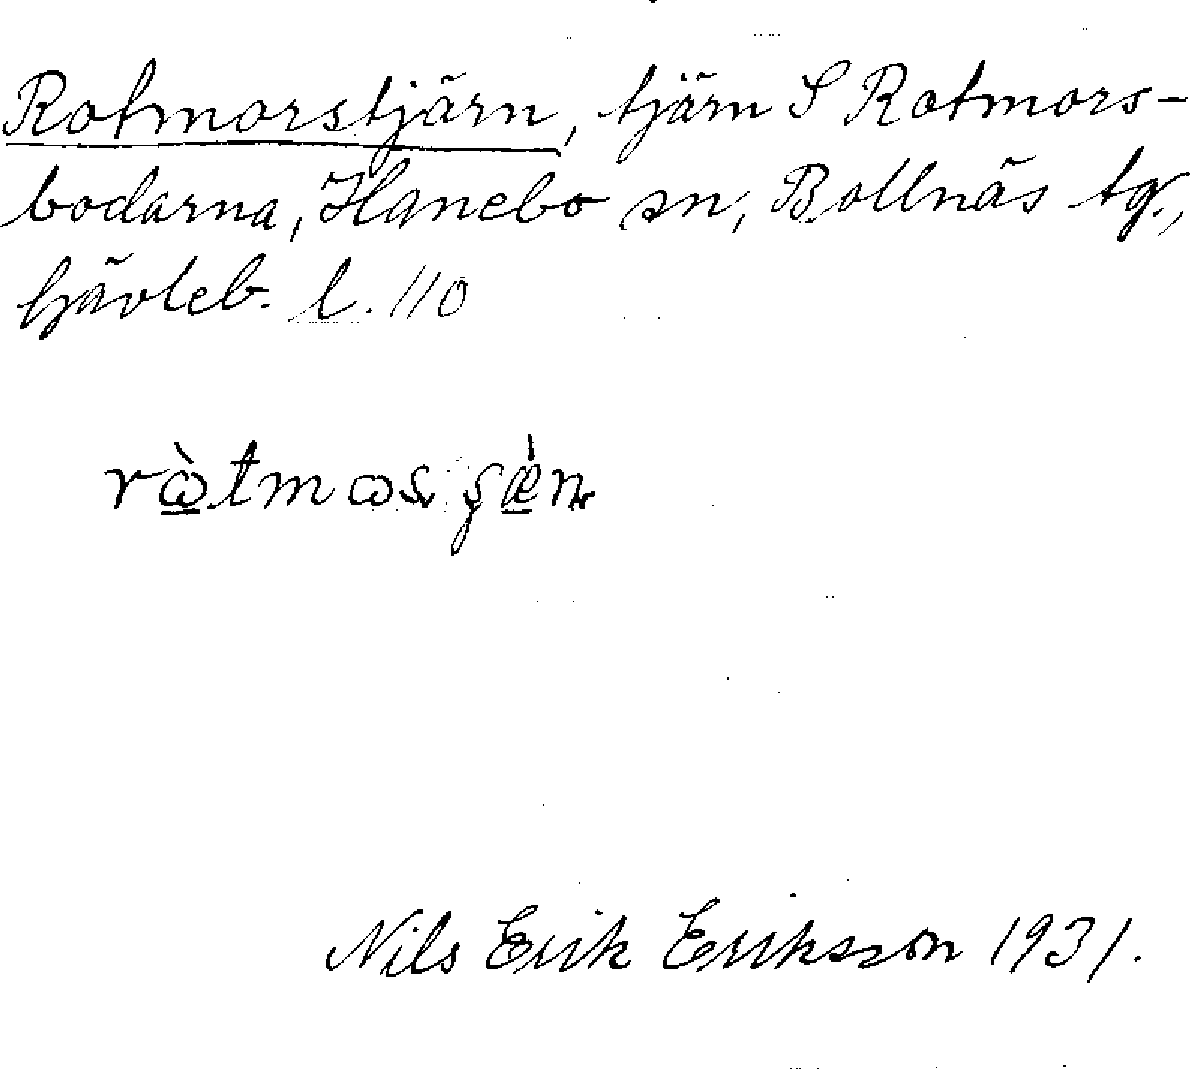 Rotmorstjärn, tjärn S Rotmors-
bodarna, Hanebo sn, Bollnäs tg.,
Gävleb. l. 110
Nils Erik Eriksson 1931.